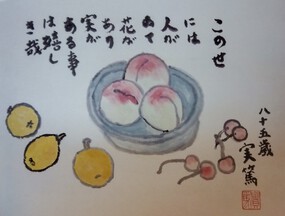 この世
には
人が
ゐて
花が
あり
実が
ある事
は嬉し
き哉
八十五歳
実篤